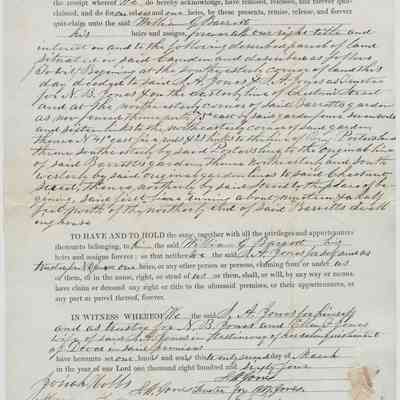 the receipt whereof We do hereby acknowledge, have remised, released, and forever quit-
claimed, and do for ourselves and our heirs, by these presents, remise, release, and forever
quit-claim unto the said William G Barrett
his heirs and assigns, forever all our right title and
interest in and to the following described parcel of land
situated in said Camden and described as follows
To wit Beginning at the
for N. B. Jones on the easterly line of Chestnut Street
and at the northeasterly corner of said Barretts garden
as now fenced thence east of said garden four
and sixteen links to the northeasterly corner of said garden
thence N 41° east four and links to the line of
thence southeasterly by said line to the original line
of said Barretts garden thence northwesterly and south
westerly by said original garden lines to said Chestnut
Street, thence northerly by said street to the place of be-
ginning, said first line running about and a half
feet north of the northerly end of said Barretts dwell
ing house
TO HAVE AND TO HOLD the same, together with all the privileges and appurtenances
thereunto belonging, to him the said William G Barrett, his
heirs and assigns forever: so that neither we the said S. A. Jones for self and as
trustee for our heirs, or any other person or persons, claiming from or under us
or them, or in the name, right, or stead of us or them, shall, or will, by any way or means,
have claim or demand any right or title to the aforesaid premises, or their appurtenances, or
any part or parcel thereof, forever.
IN WITNESS WHEREOF We the said S. A. Jones for himself
and as trustee for N. B. Jones and Jones
wife of said S. A. Jones in testimony of her relinquishment
of Dower in said premises
have hereunto set our hands and seals this twenty second day of March
in the year of our Lord one thousand eight hundred and sixty four
Josiah Hobbs
S A Jones
S. A. Jones Trustee for N B Jones